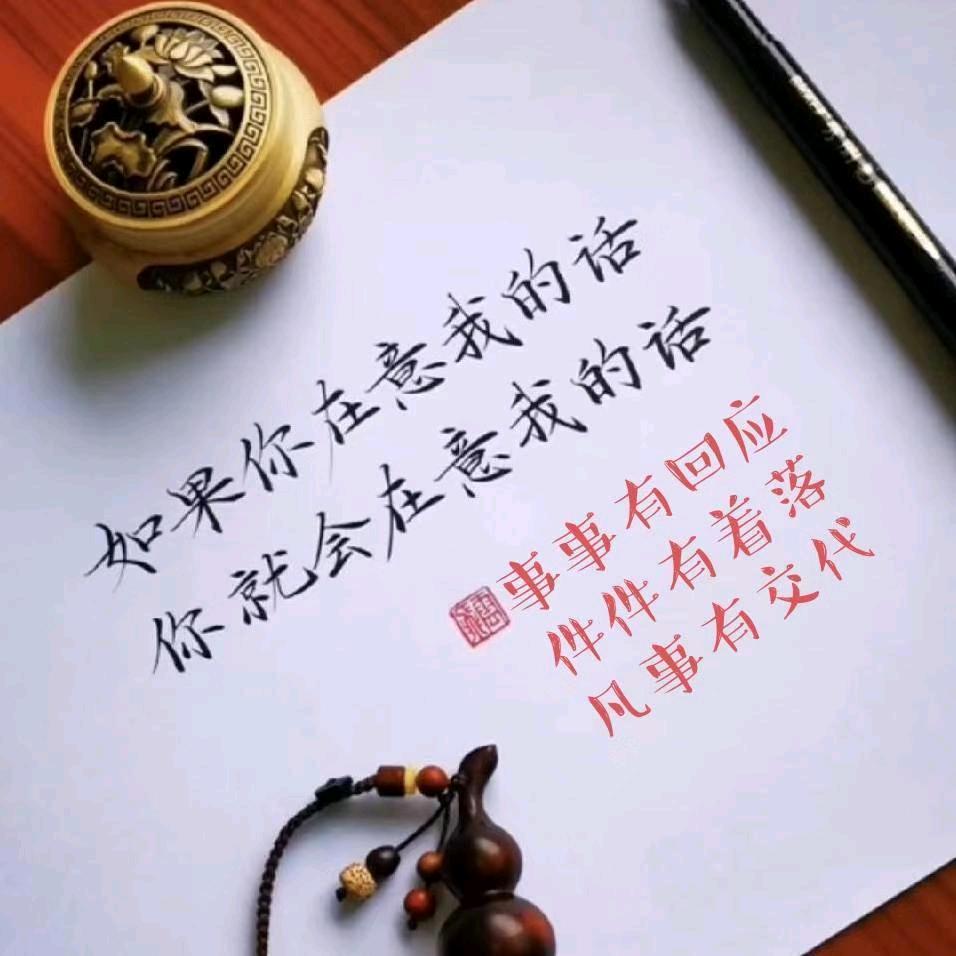 如果你在意我的话
你就会在意我的话
事事有回应
件件有着落
凡事有交代